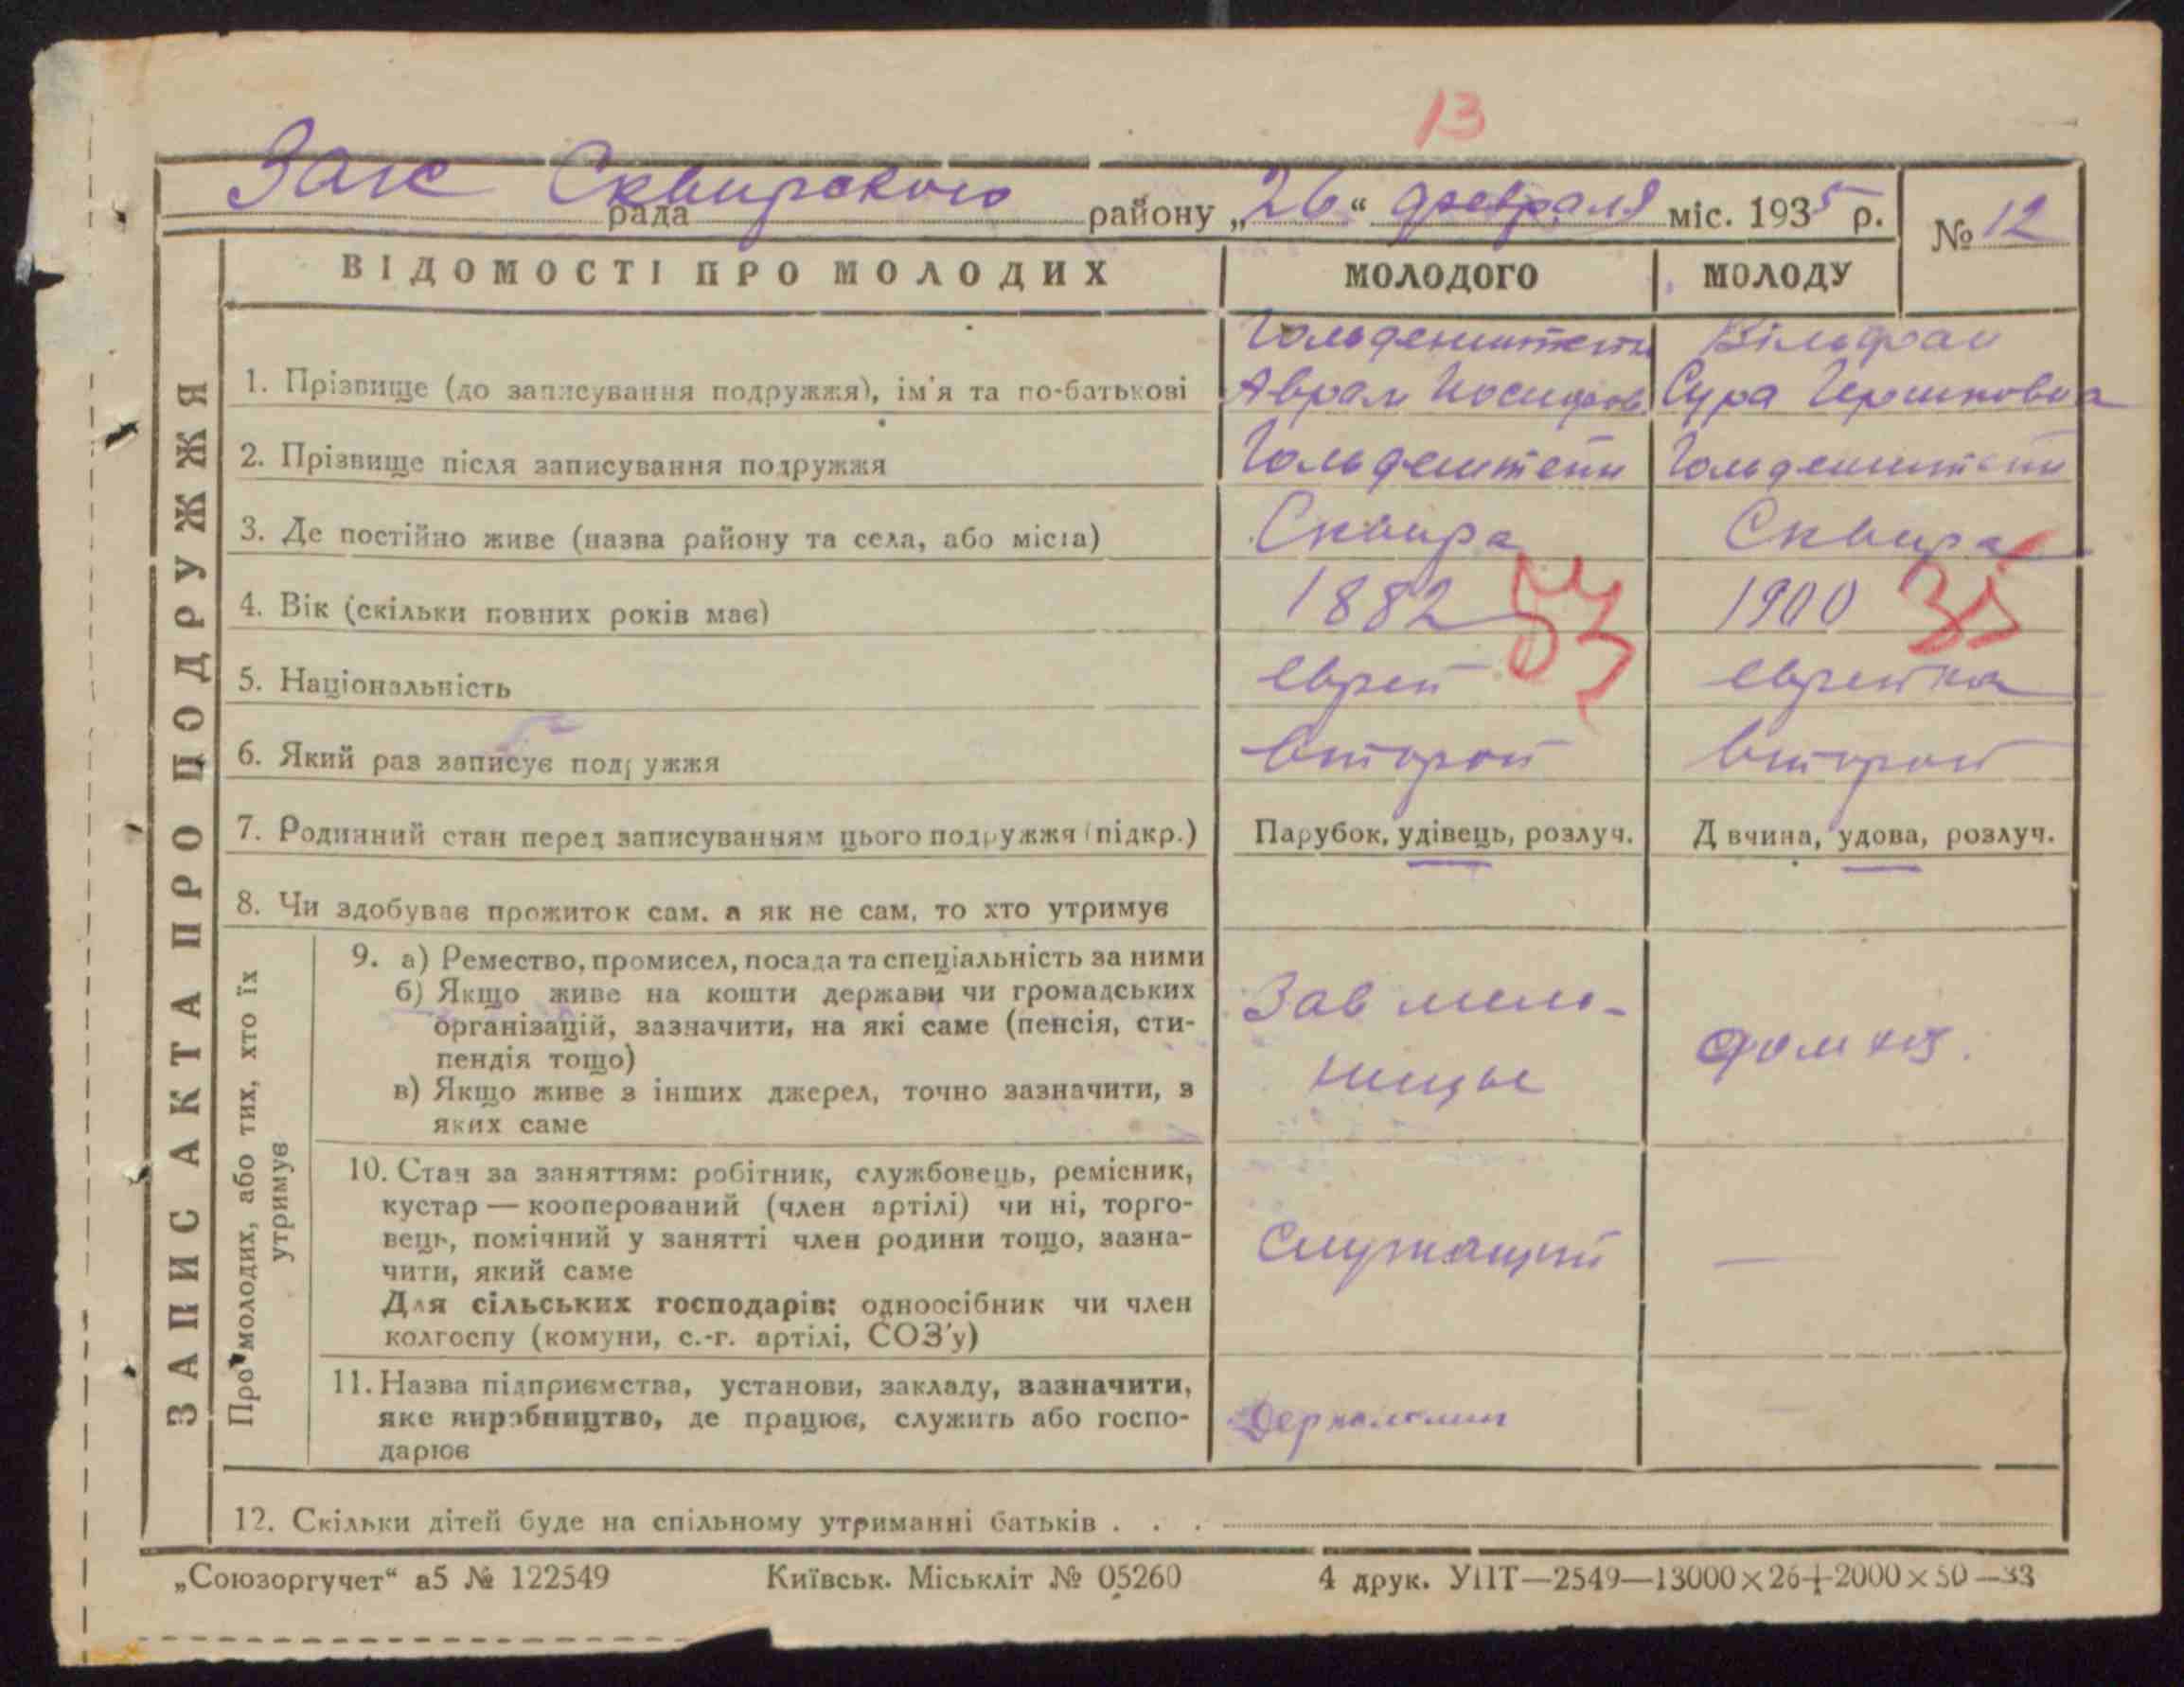 13
Загс Сквирского
рада району „26“ февраля міс. 1935 р. № 12
ВІДОМОСТІ ПРО МОЛОДИХ МОЛОДОГО МОЛОДУ
Гольденштейн Вільфран
1. Прізвище (до записування подружжя), ім'я та по-батькові Аврам Иосифов Сура Гершковна
2. Прізвище після записування подружжя Гольденштейн Гольденштейн
3. Де постійно живе (назва району та села, або міста) Сквира Сквира
4. Вік (скільки повних років має) 1882 53 1900 35
5. Національність еврей еврейка
6. Який раз записує подружжя второй второй
7. Родинний стан перед записуванням цього подружжя (підкр.) Парубок, удівець, розлуч. Дівчина, удова, розлуч.
8. Чи здобуває прожиток сам, а як не сам, то хто утримує
ЗАПИС АКТА ПРО ПОДРУЖЖЯ
Про молодих, або тих, хто їх
утримує
9. а) Ремество, промисел, посада та спеціальність за ними
б) Якщо живе на кошти держави чи громадських
організацій, зазначити, на які саме (пенсія, сти-
пендія тощо)
в) Якщо живе з інших джерел, точно зазначити, з
яких саме
Зав мель-
ницы
домхоз.
10. Стан за заняттям: робітник, службовець, ремісник,
кустар — кооперований (член артілі) чи ні, торго-
вець, помічний у занятті член родини тощо, зазна-
чити, який саме
Для сільських господарів: одноосібник чи член
колгоспу (комуни, с.-г. артілі, СОЗ'у)
Служащий —
11. Назва підприємства, установи, закладу, зазначити,
яке виробництво, де працює, служить або госпо-
дарює
12. Скільки дітей буде на спільному утриманні батьків . . .
„Союзоргучет“ а5 № 122549 Київськ. Міськліт № 05260 4 друк. УПТ—2549—13000×26+2000×50—33